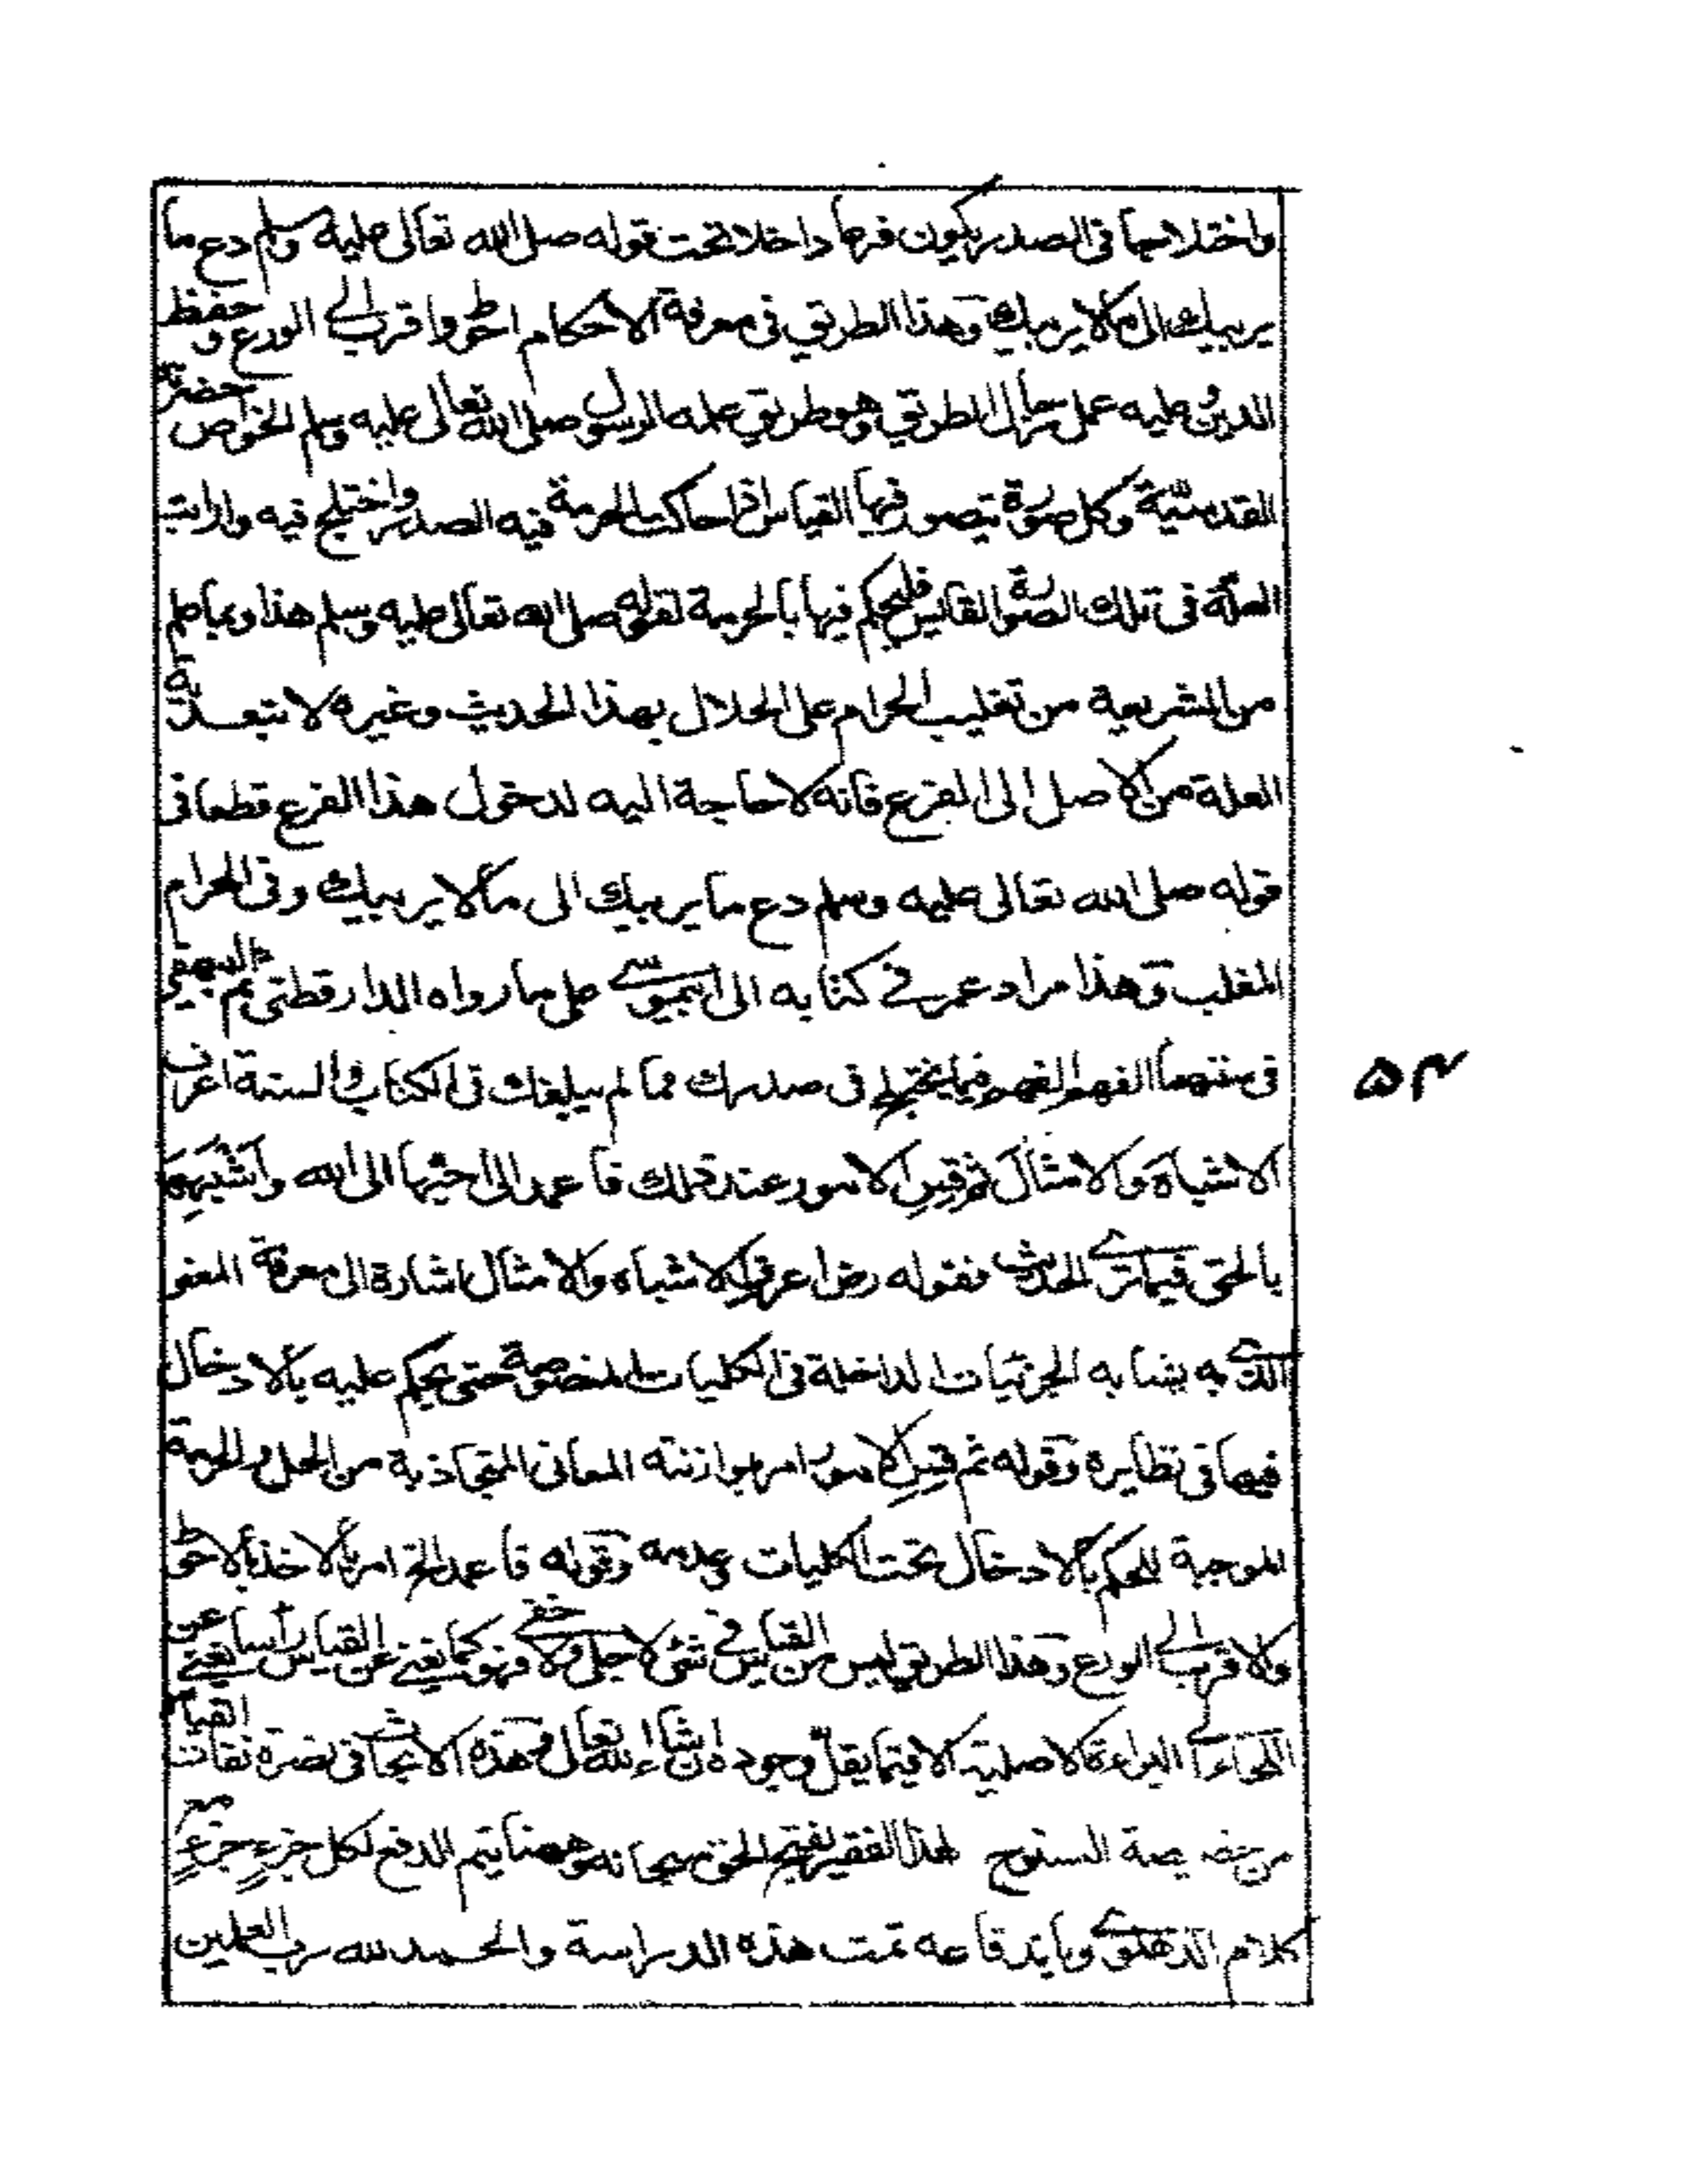 واختلاجها فى الصدر يكون فردها داخلا تحت قوله صلى الله تعالى عليه وسلم دع ما
يريبك الى مالا يريبك وهذا الطريق فى معرفة الاحكام احوط واقرب الى الورع وحفظ
الدين وعليه عمل رجال الطريق وهو طريق علمه الرسول صلى الله تعالى عليه وسلم لخواص حضرته
القدسية وكل صورة يتصور فيها القياس اذا حاكت الحرمة فيه الصدر واختلج فيه وارابت
العلة فى تلك الصورة القايس فليحكم فيها بالحرمة لقوله صلى الله تعالى عليه وسلم هذا وبما علم
من الشريعة من تغليب الحرام على الحلال بهذا الحديث وغيره لا بتعدية
العلة من الاصل الى الفرع فانه لا حاجة اليه لدخول هذا الفرع قطعا فى
قوله صلى الله تعالى عليه وسلم دع ما يريبك الى مالا يريبك وفى الحرام
المغلب وهذا مراد عمر فے كتابه الى ابى موسے على ما رواه الدارقطنى ثم البيهقى
فى سننهما الفهم الفهم فيما يختلج فى صدرك مما لم يبلغك فى الكتاب والسنة اعرف
الاشباه والامثال ثم قس الامور عند ذلك فاعمد الى احبها الى الله واشبهها
بالحق فيما ترے الحديث فقوله رض اعرف الاشباه والامثال اشارة الى معرفة المعنى
الذے به يشابه الجزئيات الداخلة فى الكليات المنصوصة حتى يحكم عليه بالادخال
فيها فى نظايره وقوله ثم قس الامور امر بموازنته المعانى المتجاذبة من الحل والحرمة
الموجبة للحكم بالادخال تحت الكليات وعدمه وقوله فاعمد الخ امر بالاخذ بالاحوط
والاقرب الى الورع وهذا الطريق ليس من القياس فے شئ لا جلى ولا خفے وهو كما يغنے عن القياس رأسا يغنے عن
البراءة الاصلية الا فيما يقل وجوده ان شاء الله تعالى وهذه الابحاث فى نصرة نفات القياس
من لهذا الفقير بفهم الحق سبحانه وههنا يتم الدفع لكل جزء جزء من
كلام الدهلوے وبا تمت هذه الدراسة والحمد لله رب العلمين
۵۳